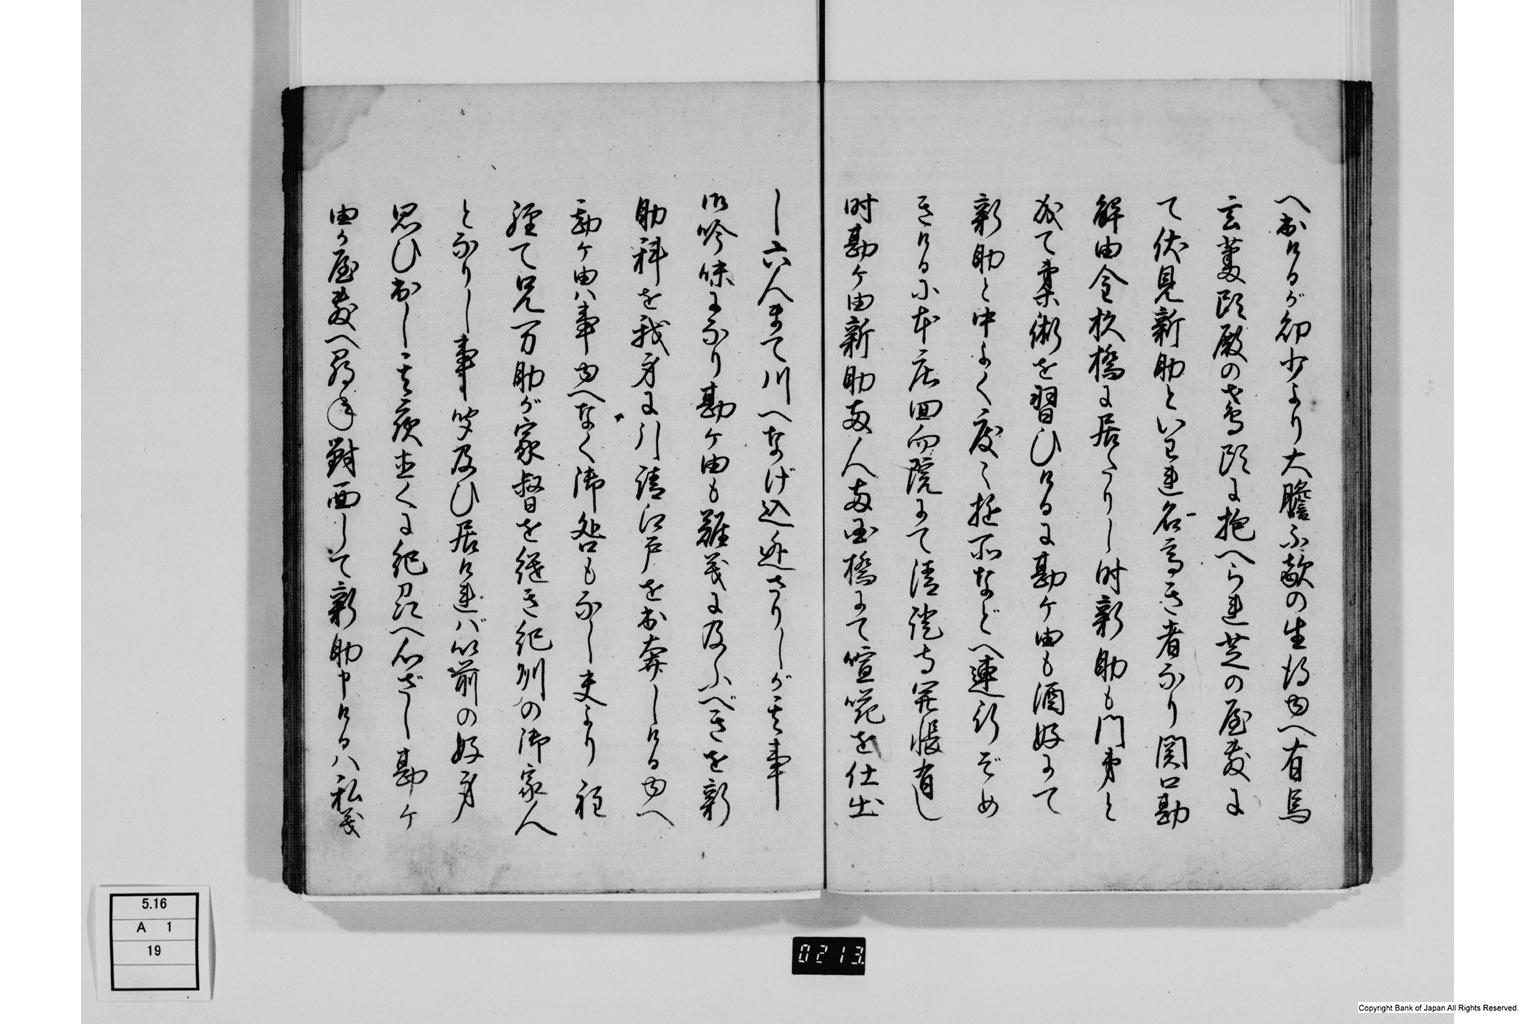 へ出けるが幼少より大膽不敵の生得ゆへ有馬
玄蕃頭殿の守頭に抱へられ芝の屋敷に
て伏見新助といわれ名高き者なり関口勘
解由金杉橋に居たりし時新助も門弟と
成て柔術を習ひけるに勘ケ由も酒好にて
新助と中よく度々遊所などへ連行ぞめ
きけるに本庄回向院にて清涼寺開帳有し
時勘ケ由新助両人両国橋にて喧嘩を仕出
し六人まて川へなげ込逃さりしが其事
御吟味になり勘ケ由も難義に及ふべきを新
助科を我身に引請江戸を出奔しけるゆへ
勘ケ由ハ事ゆへなく御咎もなし夫より
経て兄万助が家督を継き紀州の御家人
となりし事聞及ひ居けれバ以前の好身
思ひ出し其夜直くに紀へ心ざし勘ケ
由が屋敷へ尋ね對面して新助申けるハ私義
5.16
A 1
19
0213
Copyright Bank of Japan All Rights Reserved.